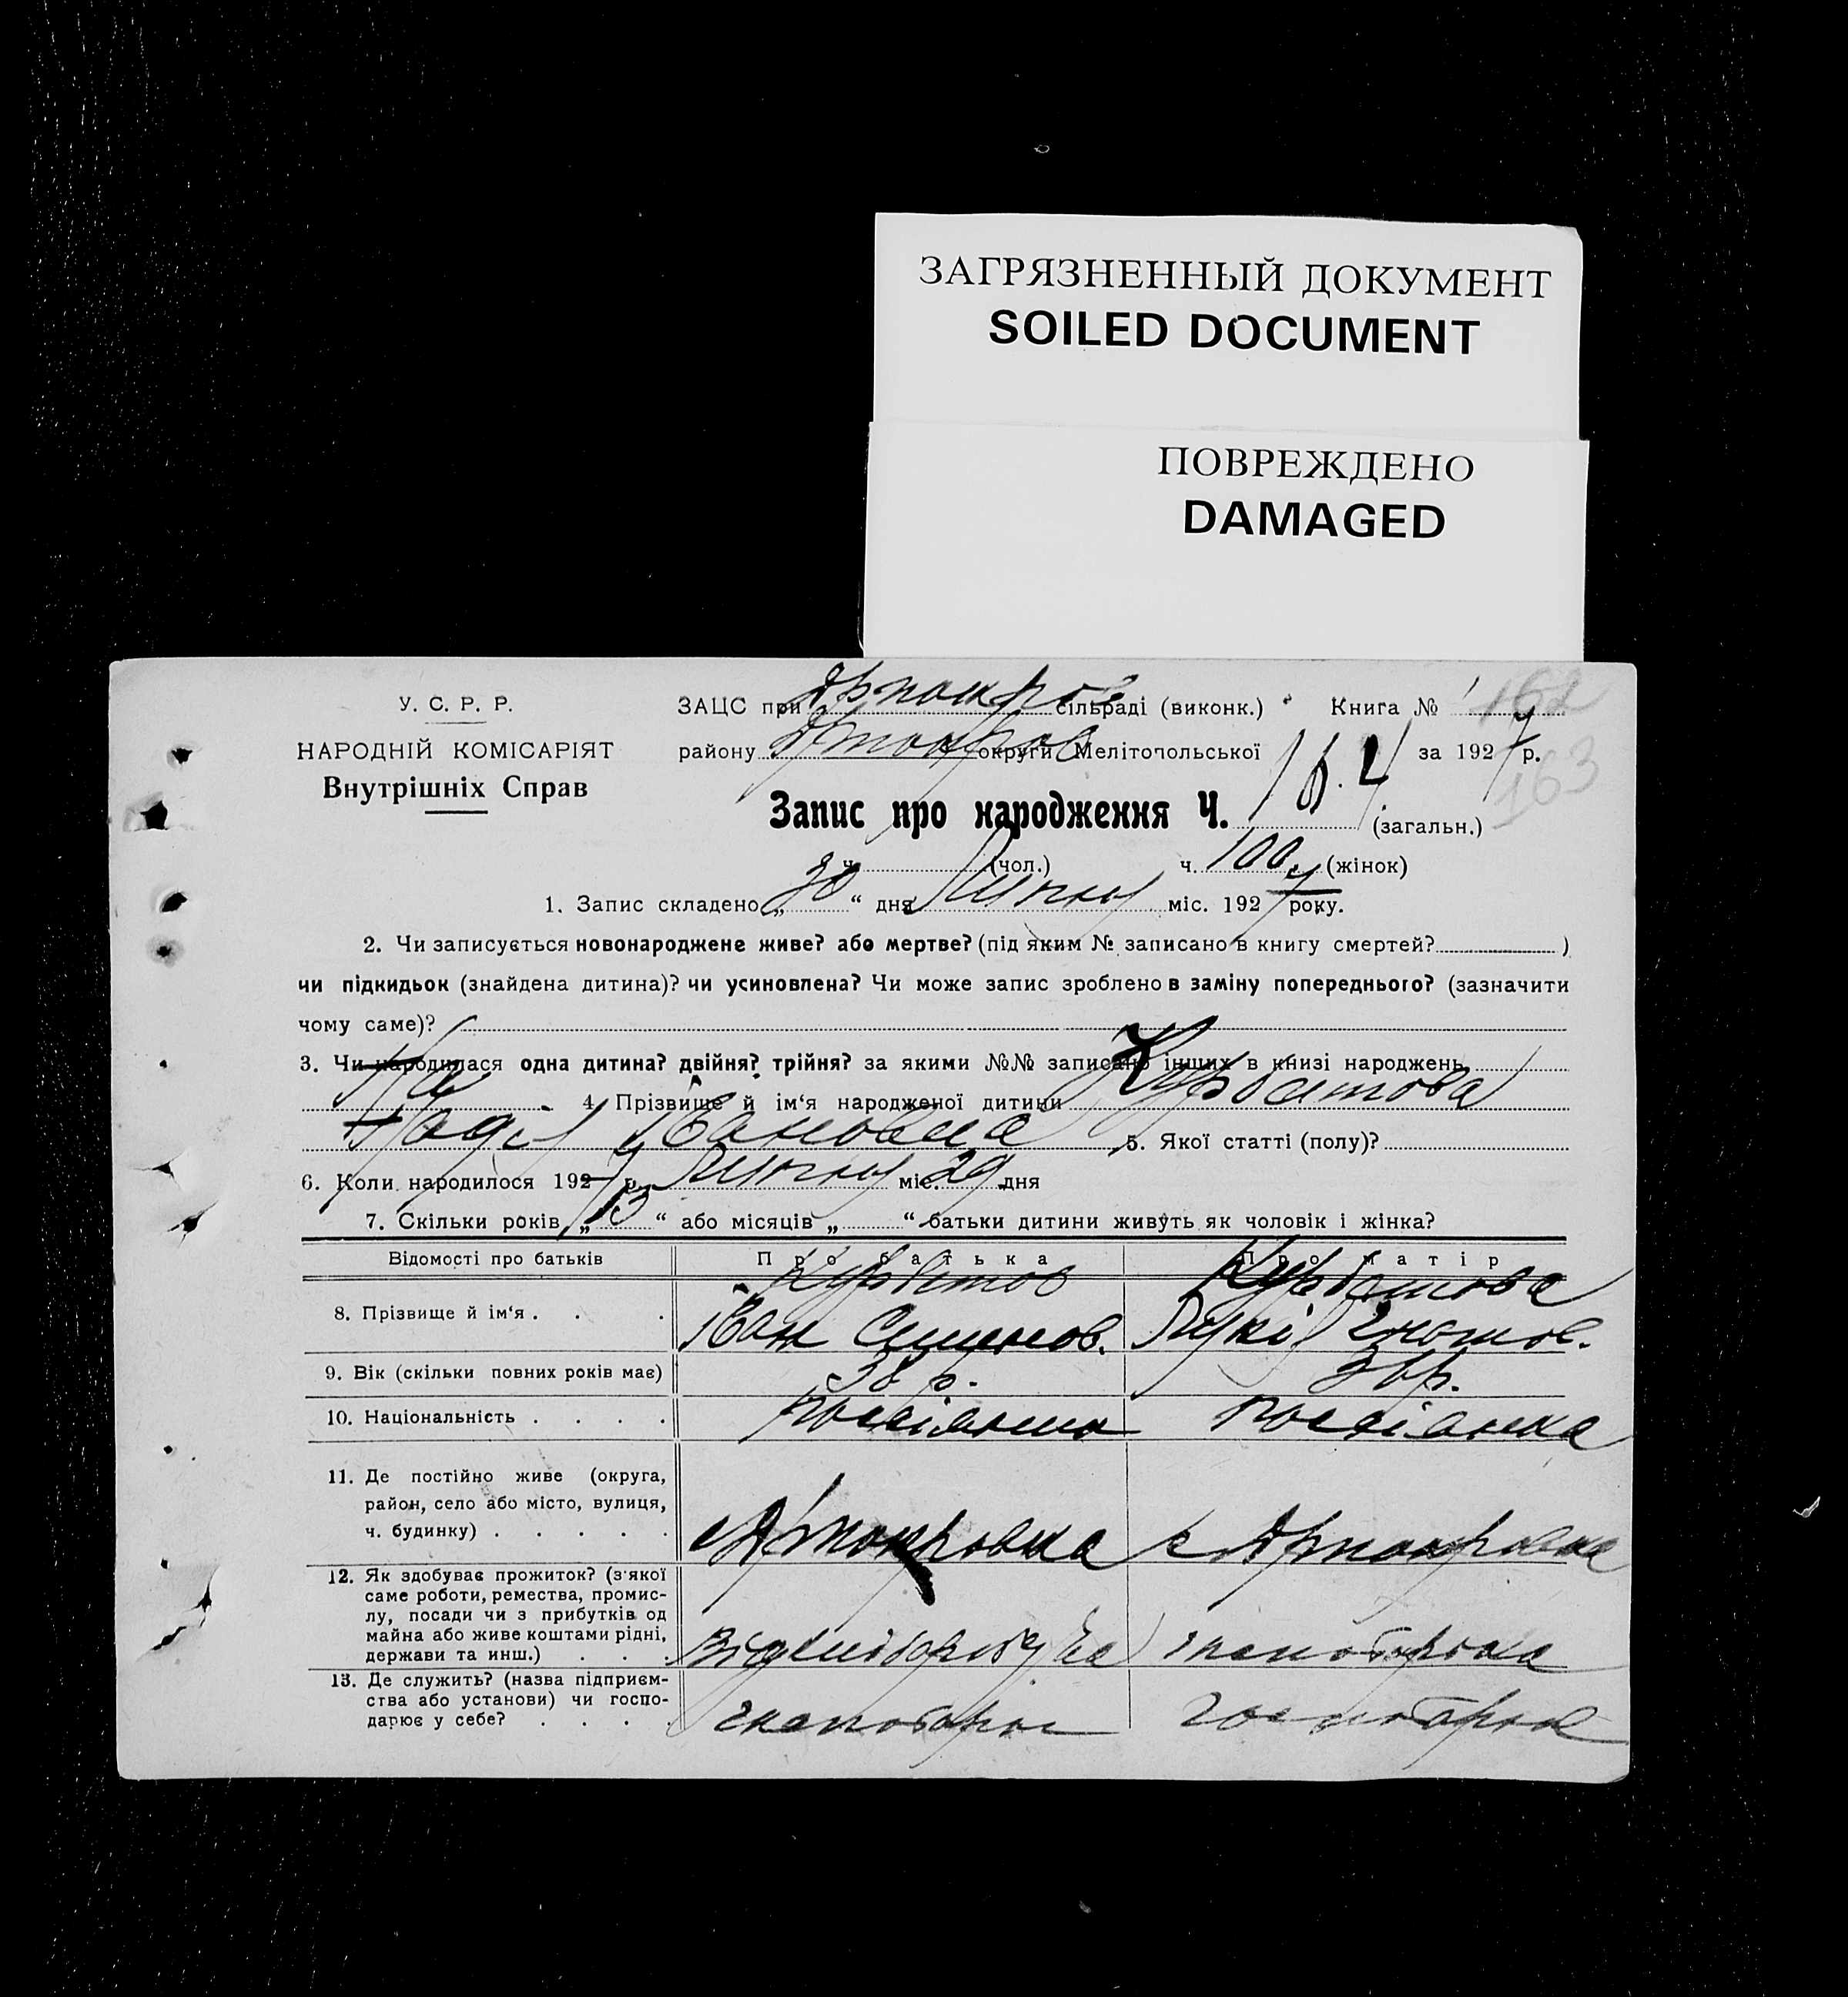 ЗАГРЯЗНЕННЫЙ ДОКУМЕНТ
SOILED DOCUMENT
ПОВРЕЖДЕНО
DAMAGED
У. С. Р. Р.
НАРОДНІЙ КОМІСАРІЯТ
Внутрішніх Справ
ЗАЦС при сільраді (виконк.) Книга № 162
району округи Мелітопольської за 1927 р.
163
Запис про народження Ч. (загальн.)
ч. (чол.) ч. 100 (жінок)
1. Запис складено „30“ дня Липня міс. 1927 року.
2. Чи записується новонароджене живе? або мертве? (під яким № записано в книгу смертей? )
чи підкидьок (знайдена дитина)? чи усиновлена? Чи може запис зроблено в заміну попереднього? (зазначити
чому саме)?
3. Чи народилася одна дитина? двійня? трійня? за якими №№ записано інших в книзі народжень
4. Прізвище й ім‘я народженої дитини Курбатова
Надія Івановна 5. Якої статті (полу)?
6. Коли народилося 1927 р. Липня міс. 29 дня
7. Скільки років „13“ або місяців „ “ батьки дитини живуть як чоловік і жінка?
Відомості про батьків Про батька Про матір
8. Прізвище й ім‘я . . . Курбатов Іван Семенов. Курбатова Лукія Гнатов.
9. Вік (скільки повних років має) 38 р. 36 р.
10. Національність . . . .
11. Де постійно живе (округа,
район, село або місто, вулиця,
ч. будинку) . . . . .
12. Як здобуває прожиток? (з якої
саме роботи, ремества, промис-
лу, посади чи з прибутків од
майна або живе коштами рідні,
держави та инш.) . . .
13. Де служить? (назва підприєм-
ства або установи) чи госпо-
дарює у себе? . . . .